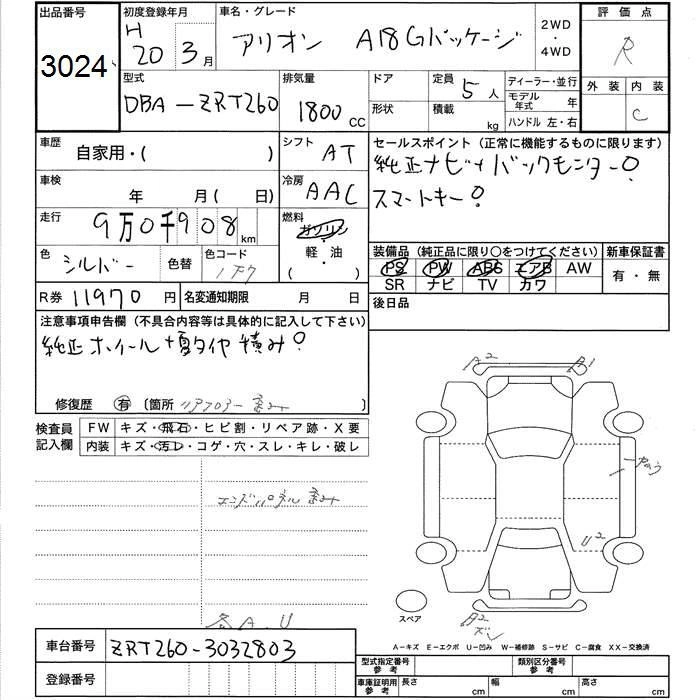 出品番号 初度登録年月 車名・グレード 2WD・4WD 評価点
3024 H 20 3月 アリオン A18 Gパッケージ R
型式 排気量 ドア 定員 5人 ディーラー・並行 外装 内装
DBA-ZRT260 1800 CC 形状 積載 kg モデル年式 年 C
ハンドル 左・右
車歴 自家用・( ) シフト AT セールスポイント (正常に機能するものに限ります)
純正ナビ バックモニター
車検 年 月( 日) 冷房 AAC スマートキー
走行 9万0千908 km 燃料 ガソリン・軽油 ( )
装備品 (純正品に限り○をつけてください) 新車保証書
色 シルバー 色替 色コード PS PW ABS エアB AW 有・無
SR ナビ TV カワ
R券 11970円 名変通知期限 月 日 後日品
注意事項申告欄 (不具合内容等は具体的に記入して下さい)
純正ホイール+夏タイヤ積み
修復歴 有 〔箇所 リアフロアー 〕
検査員記入欄 FW キズ・飛石・ヒビ割・リペア跡・X要
内装 キズ・汚レ・コゲ・穴・スレ・キレ・破レ
A2
エンドパネル
U2
スペア
A2
各A.U
A-キズ E-エクボ U-凹み W-補修跡 S-サビ C-腐食 XX-交換済
車台番号 ZRT260-3032803
型式指定番号 参考 類別区分番号 参考
登録番号
車庫証明用 参考 長さ cm 幅 cm 高さ cm